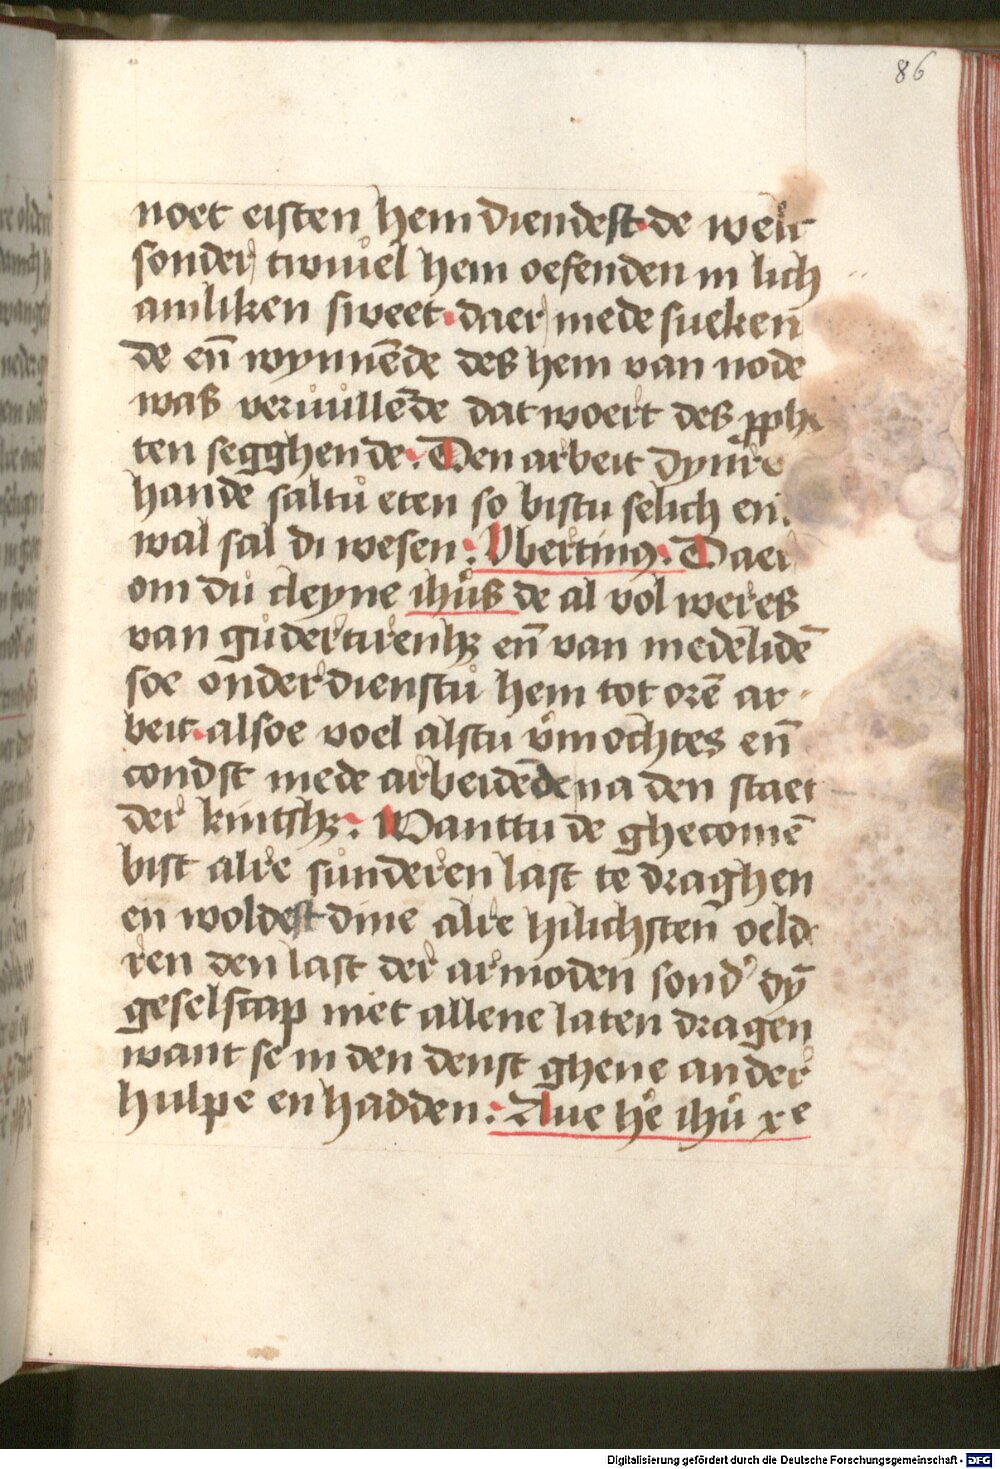 86
noet eisten hem diendest de welt
sonder twiuel hem oefenden in lich
amliken sweet daer mede sueken
de en̄ wynnēde des hem van node
was veruullēde dat woert des pphe
ten segghende. Den arbeit dynre
hande saltu eten so bistu selich en̄
wal sal di wesen: Vbertinꝰ. Daer
om du cleyne ihūs de al vol weres
van gudertirenhꝫ en̄ van medelidē
soe onderdienstu hem tot orē ar-
beit. alsoe voel alstu v̄mochtes en̄
condst mede arbeidēde na den staet
der kintshꝫ: Wanttu de ghecomē
bist alre sunderen last te draghen
en woldest dine alre hilichsten oeld
ren den last der armoden sond' dȳ
geselscap niet allene laten dragen
want se in den denst ghene ander
hulpe en hadden: Aue hē ihū xe
Digitalisierung gefördert durch die Deutsche Forschungsgemeinschaft - DFG